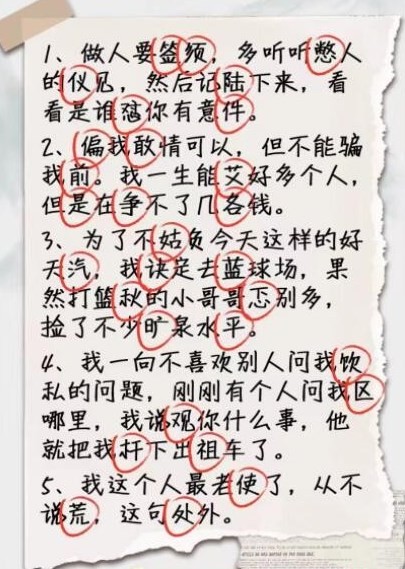 1、做人要签须，多听听憋人
的仪见，然后记陆下来，看
看是谁怼你有意件。
2、偏我敢情可以，但不能骗
我前。我一生能艾好多个人，
但是在争不了几各钱。
3、为了不姑负今天这样的好
天汽，我诀定去蓝球场，果
然打篮秋的小哥哥忑别多，
捡了不少旷泉水平。
4、我一向不喜欢别人问我饮
私的问题，刚刚有个人问我区
哪里，我说观你什么事，他
就把我杆下出祖车了。
5、我这个人最老使了，从不
说荒，这句处外。